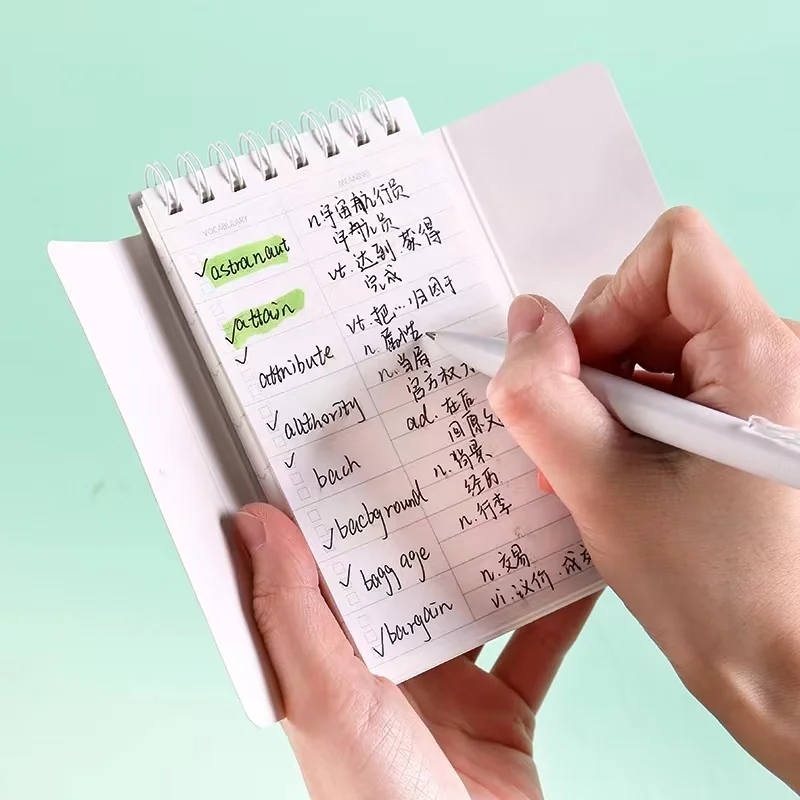 VOCABULARY MEANING
✓astronaut n.宇宙航行员
宇航员
✓attain vt.达到 获得
完成
✓attribute vt.把…归因于
n.属性
✓authority n.当局
官方权
✓back ad.在后
回原
✓background n.背景
经历
✓baggage n.行李
✓bargain n.交易
vi.议价.成